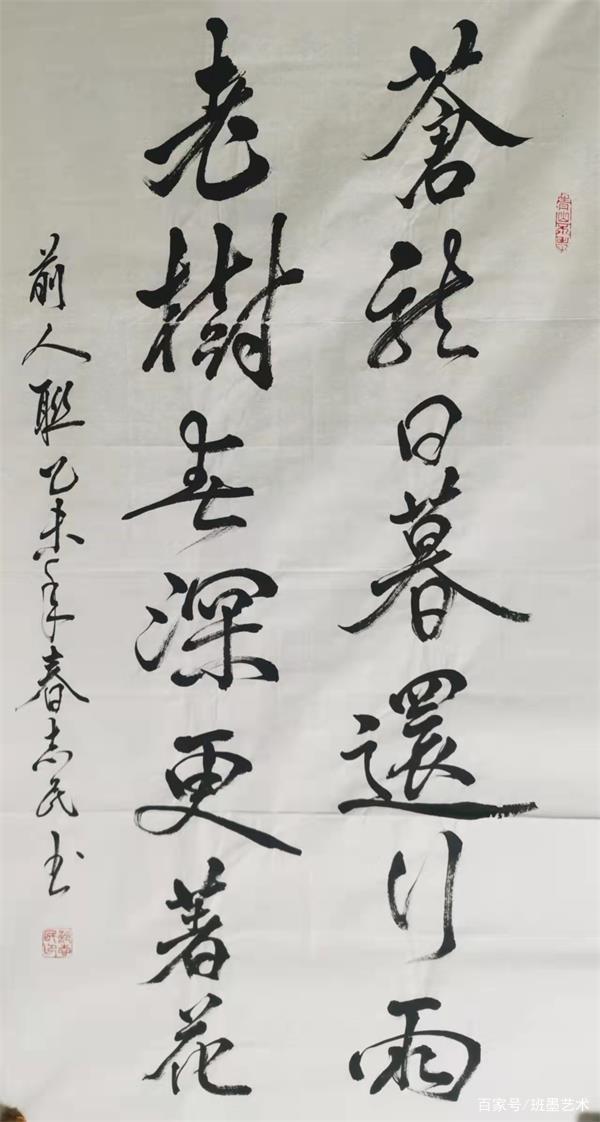 蒼龍日暮還行雨
老樹春深更著花
前人聯乙未年春志民书
百家号/班墨艺术